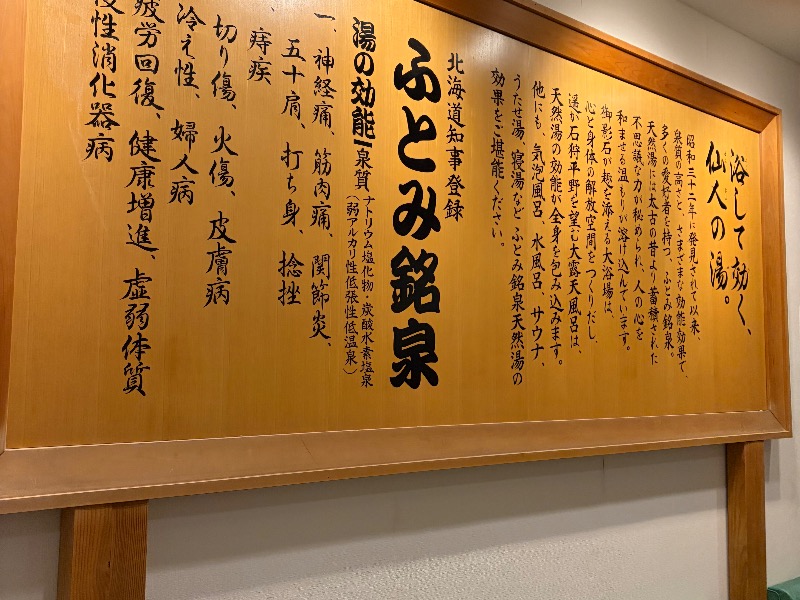 浴して効く、
仙人の湯。
昭和三十二年に発見されて以来、
泉質の高さと、さまざまな効能効果で、
多くの愛好者を持つ、ふとみ銘泉。
天然湯には太古の昔より蓄積された
不思議な力が秘められ、人の心を
和ませる温もりが溶け込んでいます。
御影石が趣を添える大浴場は、
心と身体の解放空間をつくりだし、
遥か石狩平野を望む大露天風呂は、
天然湯の効能が全身を包み込みます。
他にも、気泡風呂、水風呂、サウナ、
うたせ湯、寝湯など ふとみ銘泉天然湯の
効果をご堪能ください。
北海道知事登録
ふとみ銘泉
湯の効能 泉質 ナトリウム塩化物・炭酸水素塩泉
(弱アルカリ性低張性低温泉)
一、神経痛、筋肉痛、関節炎、
五十肩、打ち身、捻挫
痔疾
切り傷、火傷、皮膚病
冷え性、婦人病
疲労回復、健康増進、虚弱体質
慢性消化器病